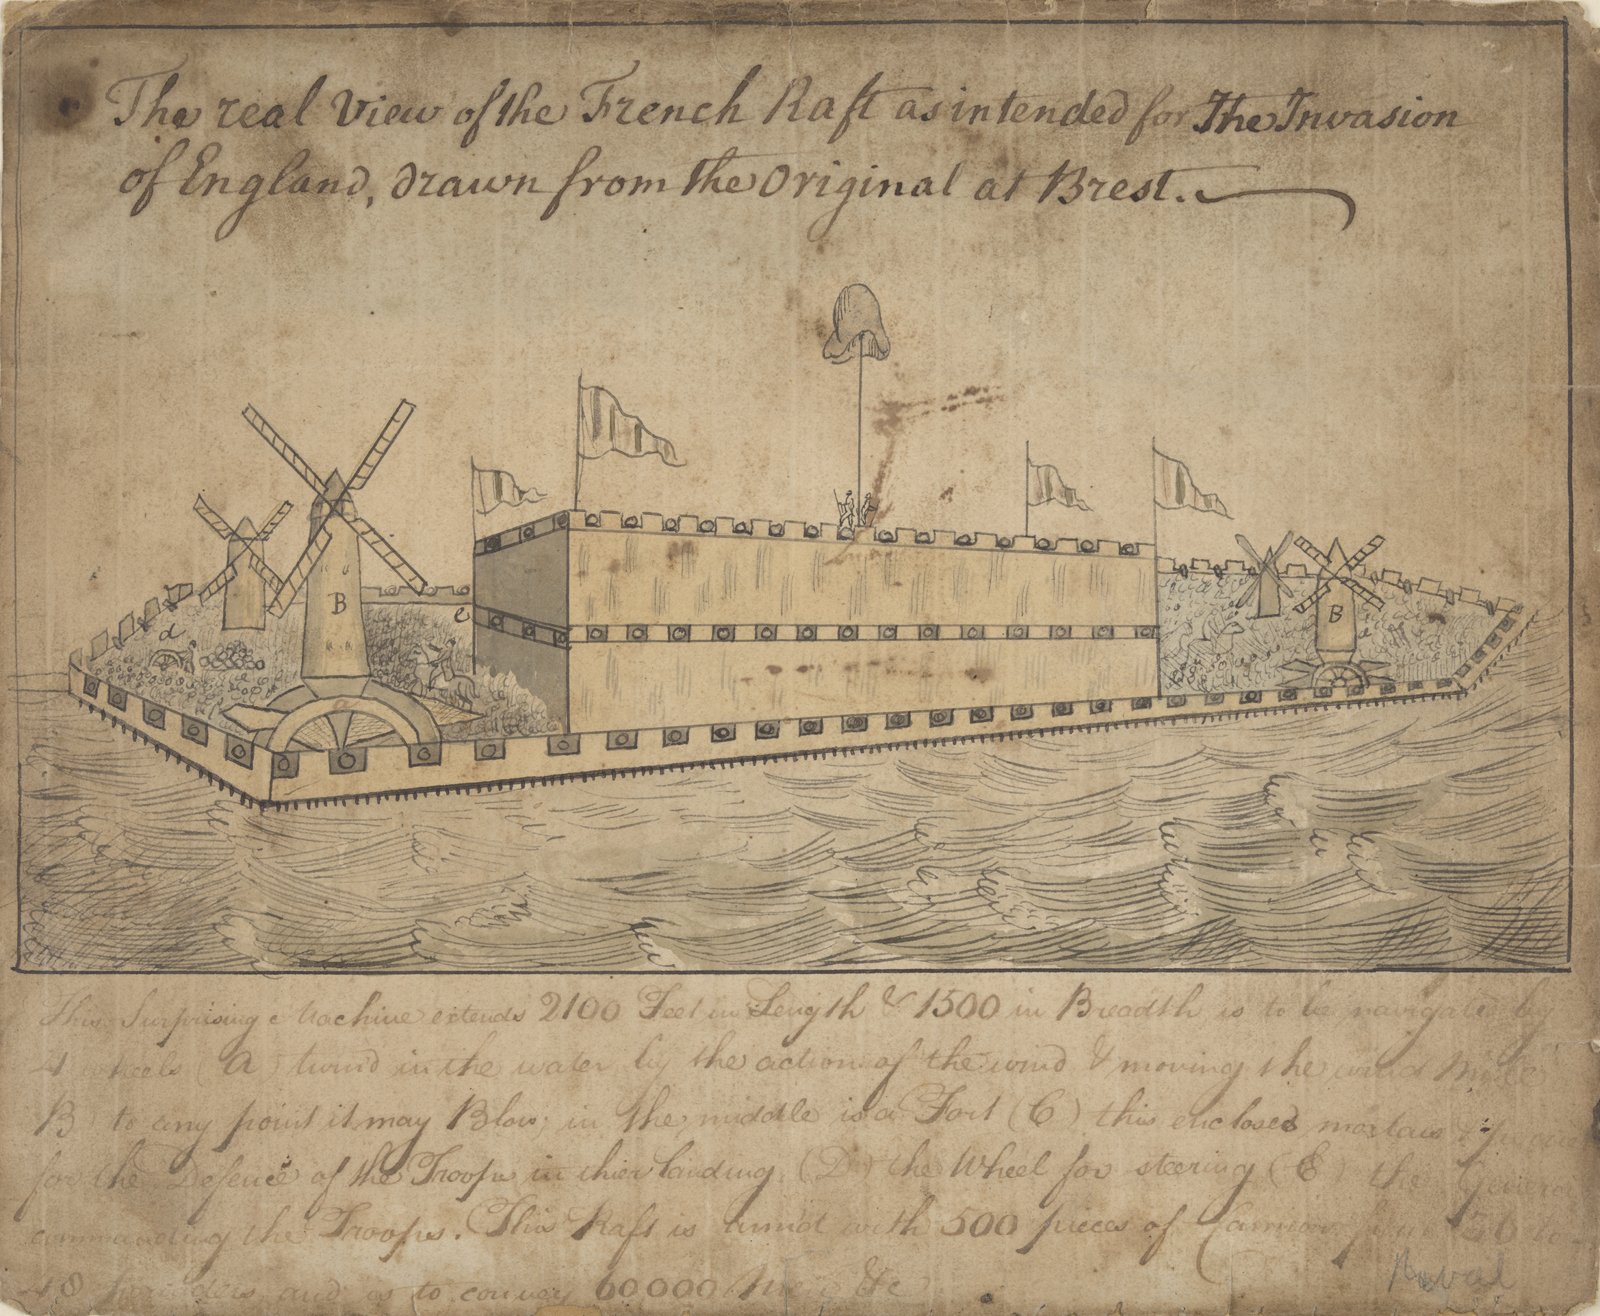 The real View of the French Raft as intended for The Invasion
of England, drawn from the Original at Brest.
B
d
e
B
a
This Surprising Machine extends 2100 Feet in Length & 1500 in Breadth is to be navigated by
4 wheels (A) turn'd in the water by the action of the wind & moving the wind Mills
B to any point it may Blow; in the middle is a Fort (C) this encloses mortars &
for the Defence of the Troops in thier landing. (D) the Wheel for steering (E) the General
commanding the Troops. This Raft is armed with 500 pieces of Cannon from 36 to
48 pounders and is to convey 60000 Men &c